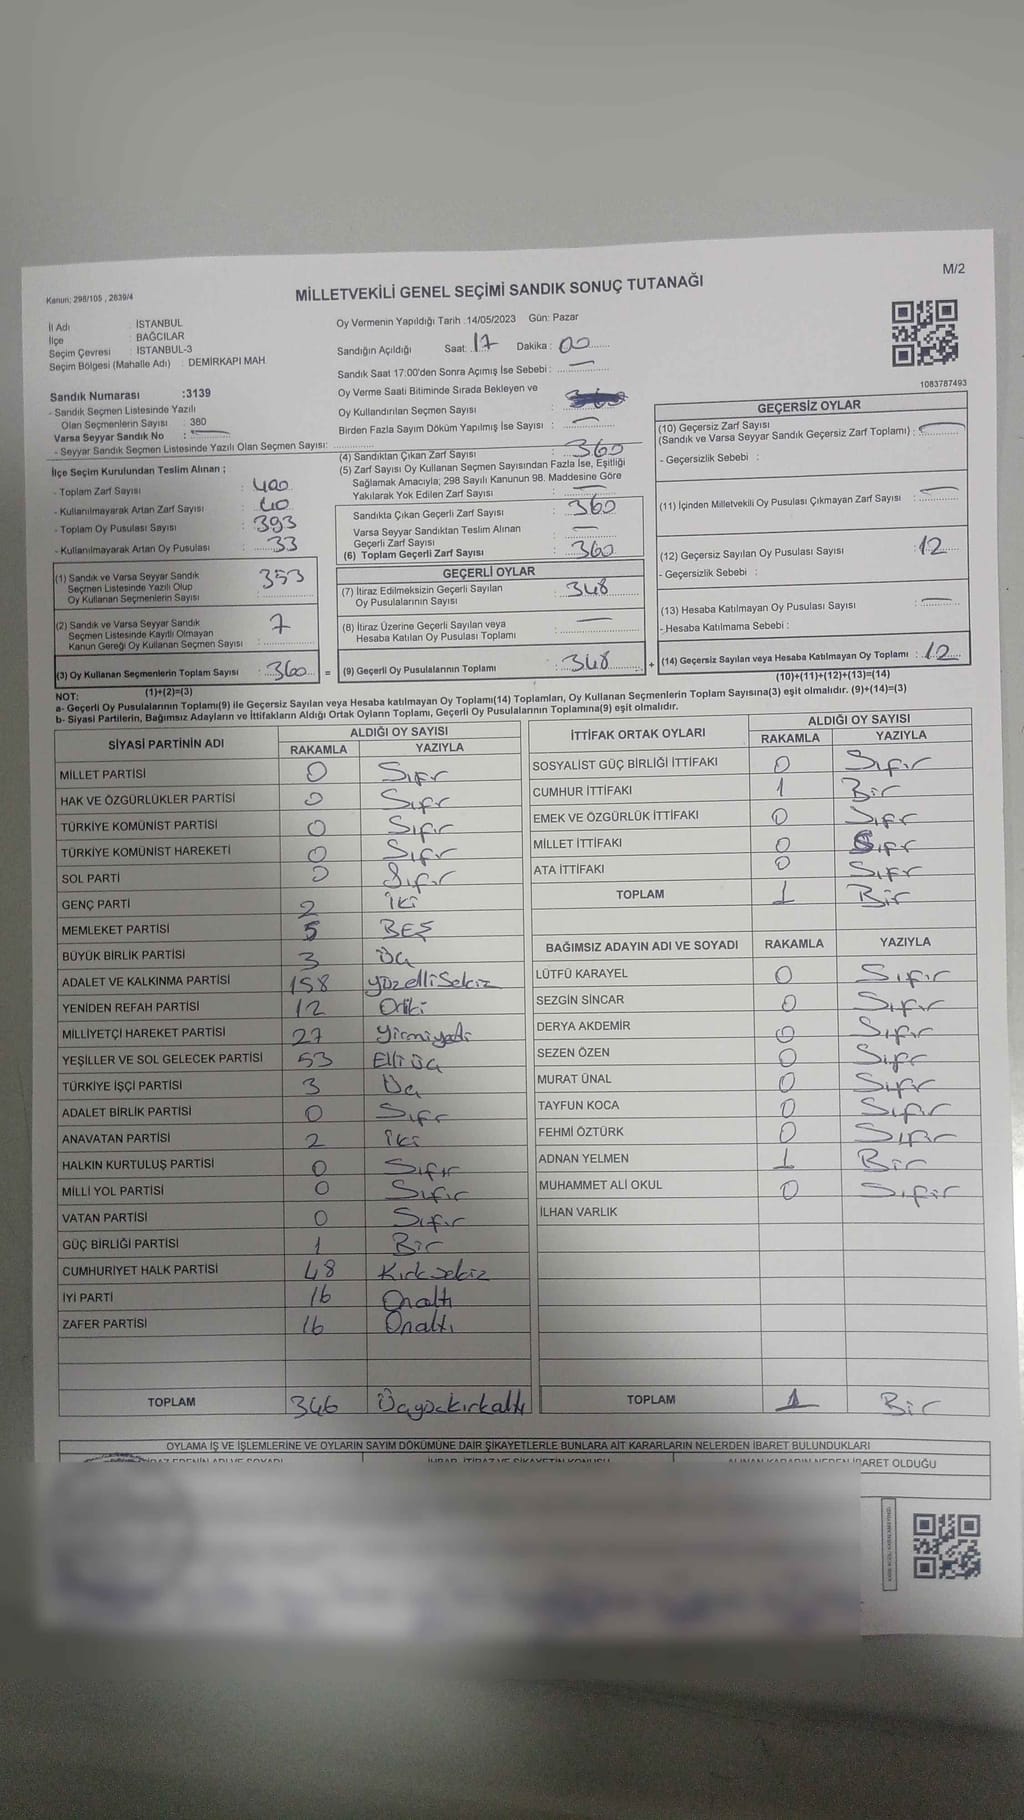 M/2
Kanun: 298/105 , 2839/4
MİLLETVEKİLİ GENEL SEÇİMİ SANDIK SONUÇ TUTANAĞI
İl Adı : İSTANBUL
İlçe : BAĞCILAR
Seçim Çevresi : İSTANBUL-3
Seçim Bölgesi (Mahalle Adı) : DEMİRKAPI MAH.
Sandık Numarası :3139
- Sandık Seçmen Listesinde Yazılı
Olan Seçmenlerin Sayısı : 380
Varsa Seyyar Sandık No :
- Seyyar Sandık Seçmen Listesinde Yazılı Olan Seçmen Sayısı:
İlçe Seçim Kurulundan Teslim Alınan ;
- Toplam Zarf Sayısı : 400
- Kullanılmayarak Artan Zarf Sayısı : 40
- Toplam Oy Pusulası Sayısı : 393
- Kullanılmayarak Artan Oy Pusulası : 33
(1) Sandık ve Varsa Seyyar Sandık
Seçmen Listesinde Yazılı Olup
Oy Kullanan Seçmenlerin Sayısı : 353
(2) Sandık ve Varsa Seyyar Sandık
Seçmen Listesinde Kayıtlı Olmayan
Kanun Gereği Oy Kullanan Seçmen Sayısı : 7
(3) Oy Kullanan Seçmenlerin Toplam Sayısı : 360 =
(1)+(2)=(3)
Oy Vermenin Yapıldığı Tarih :14/05/2023 Gün: Pazar
Sandığın Açıldığı Saat: 17 Dakika : 00
Sandık Saat 17:00'den Sonra Açımış İse Sebebi : —
Oy Verme Saati Bitiminde Sırada Bekleyen ve
Oy Kullandırılan Seçmen Sayısı :
Birden Fazla Sayım Döküm Yapılmış İse Sayısı : —
(4) Sandıktan Çıkan Zarf Sayısı : 360
(5) Zarf Sayısı Oy Kullanan Seçmen Sayısından Fazla İse, Eşitliği
Sağlamak Amacıyla; 298 Sayılı Kanunun 98. Maddesine Göre
Yakılarak Yok Edilen Zarf Sayısı : —
Sandıkta Çıkan Geçerli Zarf Sayısı : 360
Varsa Seyyar Sandıktan Teslim Alınan
Geçerli Zarf Sayısı : —
(6) Toplam Geçerli Zarf Sayısı : 360
GEÇERLİ OYLAR
(7) İtiraz Edilmeksizin Geçerli Sayılan
Oy Pusulalarının Sayısı : 348
(8) İtiraz Üzerine Geçerli Sayılan veya
Hesaba Katılan Oy Pusulası Toplamı : —
(9) Geçerli Oy Pusulalarının Toplamı : 348 +
1083787493
GEÇERSİZ OYLAR
(10) Geçersiz Zarf Sayısı
(Sandık ve Varsa Seyyar Sandık Geçersiz Zarf Toplamı) : —
- Geçersizlik Sebebi :
(11) İçinden Milletvekili Oy Pusulası Çıkmayan Zarf Sayısı : —
(12) Geçersiz Sayılan Oy Pusulası Sayısı : 12
- Geçersizlik Sebebi :
(13) Hesaba Katılmayan Oy Pusulası Sayısı : —
- Hesaba Katılmama Sebebi :
(14) Geçersiz Sayılan veya Hesaba Katılmayan Oy Toplamı : 12
(10)+(11)+(12)+(13)=(14)
NOT:
a- Geçerli Oy Pusulalarının Toplamı(9) ile Geçersiz Sayılan veya Hesaba katılmayan Oy Toplamı(14) Toplamları, Oy Kullanan Seçmenlerin Toplam Sayısına(3) eşit olmalıdır. (9)+(14)=(3)
b- Siyasi Partilerin, Bağımsız Adayların ve İttifakların Aldığı Ortak Oyların Toplamı, Geçerli Oy Pusulalarının Toplamına(9) eşit olmalıdır.
SİYASİ PARTİNİN ADI ALDIĞI OY SAYISI
RAKAMLA YAZIYLA
MİLLET PARTİSİ 0 Sıfır
HAK VE ÖZGÜRLÜKLER PARTİSİ 0 Sıfır
TÜRKİYE KOMÜNİST PARTİSİ 0 Sıfır
TÜRKİYE KOMÜNİST HAREKETİ 0 Sıfır
SOL PARTİ 0 Sıfır
GENÇ PARTİ 2 İki
MEMLEKET PARTİSİ 5 BEŞ
BÜYÜK BİRLİK PARTİSİ 3 Üç
ADALET VE KALKINMA PARTİSİ 158 yüzelliSekiz
YENİDEN REFAH PARTİSİ 12 Oniki
MİLLİYETÇİ HAREKET PARTİSİ 27 yirmiyedi
YEŞİLLER VE SOL GELECEK PARTİSİ 53 Elli üç
TÜRKİYE İŞÇİ PARTİSİ 3 Üç
ADALET BİRLİK PARTİSİ 0 Sıfır
ANAVATAN PARTİSİ 2 İki
HALKIN KURTULUŞ PARTİSİ 0 Sıfır
MİLLİ YOL PARTİSİ 0 Sıfır
VATAN PARTİSİ 0 Sıfır
GÜÇ BİRLİĞİ PARTİSİ 1 Bir
CUMHURİYET HALK PARTİSİ 48 Kırksekiz
İYİ PARTİ 16 Onaltı
ZAFER PARTİSİ 16 Onaltı
TOPLAM 346 Üçyüzkırkaltı
İTTİFAK ORTAK OYLARI ALDIĞI OY SAYISI
RAKAMLA YAZIYLA
SOSYALİST GÜÇ BİRLİĞİ İTTİFAKI 0 Sıfır
CUMHUR İTTİFAKI 1 Bir
EMEK VE ÖZGÜRLÜK İTTİFAKI 0 Sıfır
MİLLET İTTİFAKI 0 Sıfır
ATA İTTİFAKI 0 Sıfır
TOPLAM 1 Bir
BAĞIMSIZ ADAYIN ADI VE SOYADI RAKAMLA YAZIYLA
LÜTFÜ KARAYEL 0 Sıfır
SEZGİN SİNCAR 0 Sıfır
DERYA AKDEMİR 0 Sıfır
SEZEN ÖZEN 0 Sıfır
MURAT ÜNAL 0 Sıfır
TAYFUN KOCA 0 Sıfır
FEHMİ ÖZTÜRK 0 Sıfır
ADNAN YELMEN 1 Bir
MUHAMMET ALİ OKUL 0 Sıfır
İLHAN VARLIK
TOPLAM 1 Bir
OYLAMA İŞ VE İŞLEMLERİNE VE OYLARIN SAYIM DÖKÜMÜNE DAİR ŞİKAYETLERLE BUNLARA AİT KARARLARIN NELERDEN İBARET BULUNDUKLARI
OLDUĞU